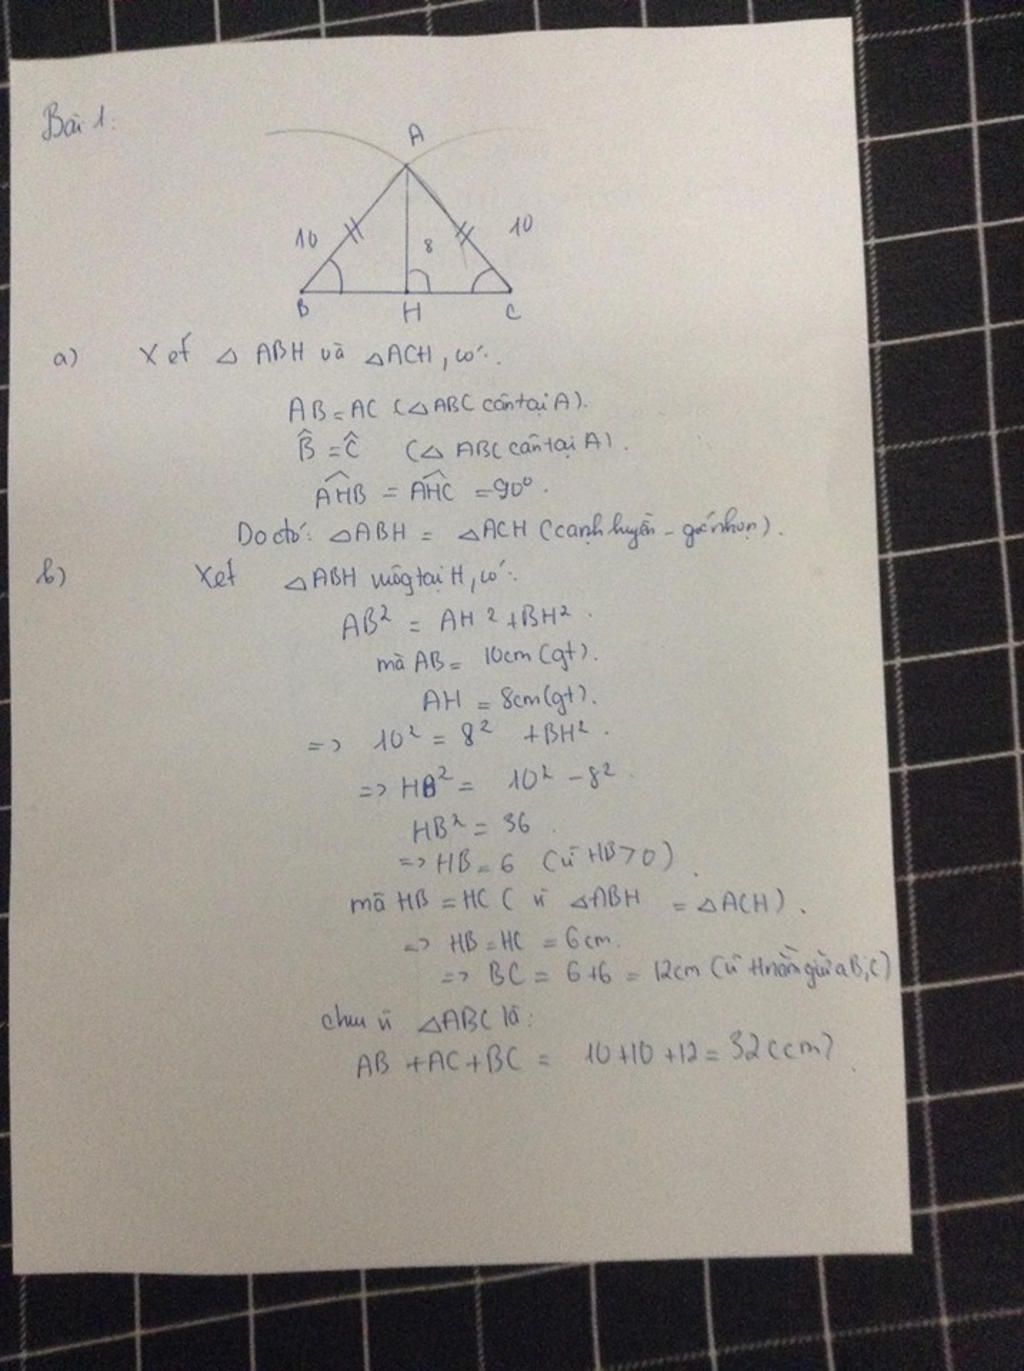 Bài 1:
A
10
10
8
B
H
C
a) Xét △ ABH và △ACH, có:
AB = AC (△ABC cân tại A).
B̂ = Ĉ (△ ABC cân tại A).
AHB = AHC = 90°.
Do đó: △ABH = △ACH (cạnh huyền - góc nhọn).
b) Xét △ABH vuông tại H, có:
AB² = AH² + BH².
mà AB = 10cm (gt).
AH = 8cm (gt).
=> 10² = 8² + BH².
=> HB² = 10² - 8²
HB² = 36
=> HB = 6 (vì HB > 0).
mà HB = HC (vì △ABH = △ACH).
=> HB = HC = 6cm.
=> BC = 6+6 = 12cm (vì H nằm giữa B,C)
chu vi △ABC là:
AB + AC + BC = 10+10+12 = 32 (cm)